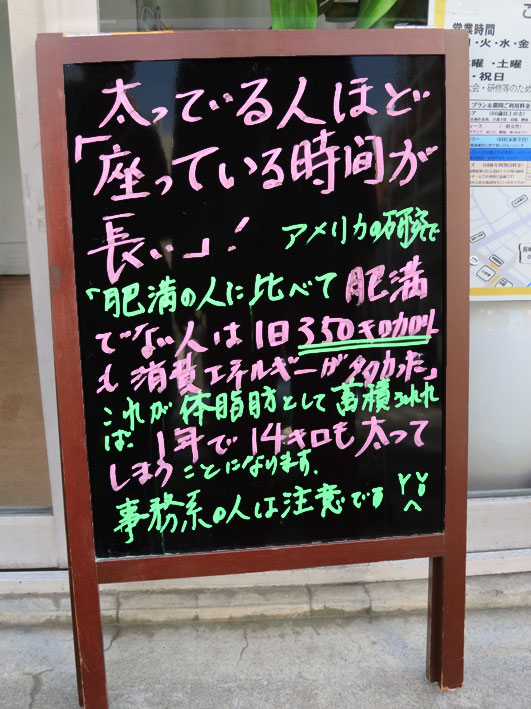 太っている人ほど
「座っている時間が
長い」!
アメリカの研究で
「肥満の人に比べて肥満
でない人は1日350キロカロリー
も消費エネルギーが多かった」
これが体脂肪として蓄積されれ
ば、1年で14キロも太って
しまうことになります。
事務系の人は注意です
営業時間
・火・水・金
曜・土曜
・祝日